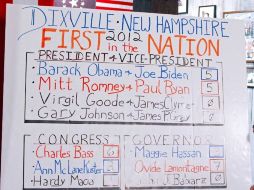 DIXVILLE - NEW HAMPSHIRE
FIRST 2012 in the NATION
PRESIDENT + VICE-PRESIDENT
Barack Obama + Joe Biden 5
Mitt Romney + Paul Ryan 5
Virgil Goode + James 0
Gary Johnson + James P. Gray
CONGRESS GOVERNOR
Charles Bass Maggie Hassan
Ann McLane Kuster Ovide Lamontagne 7
Hardy 0